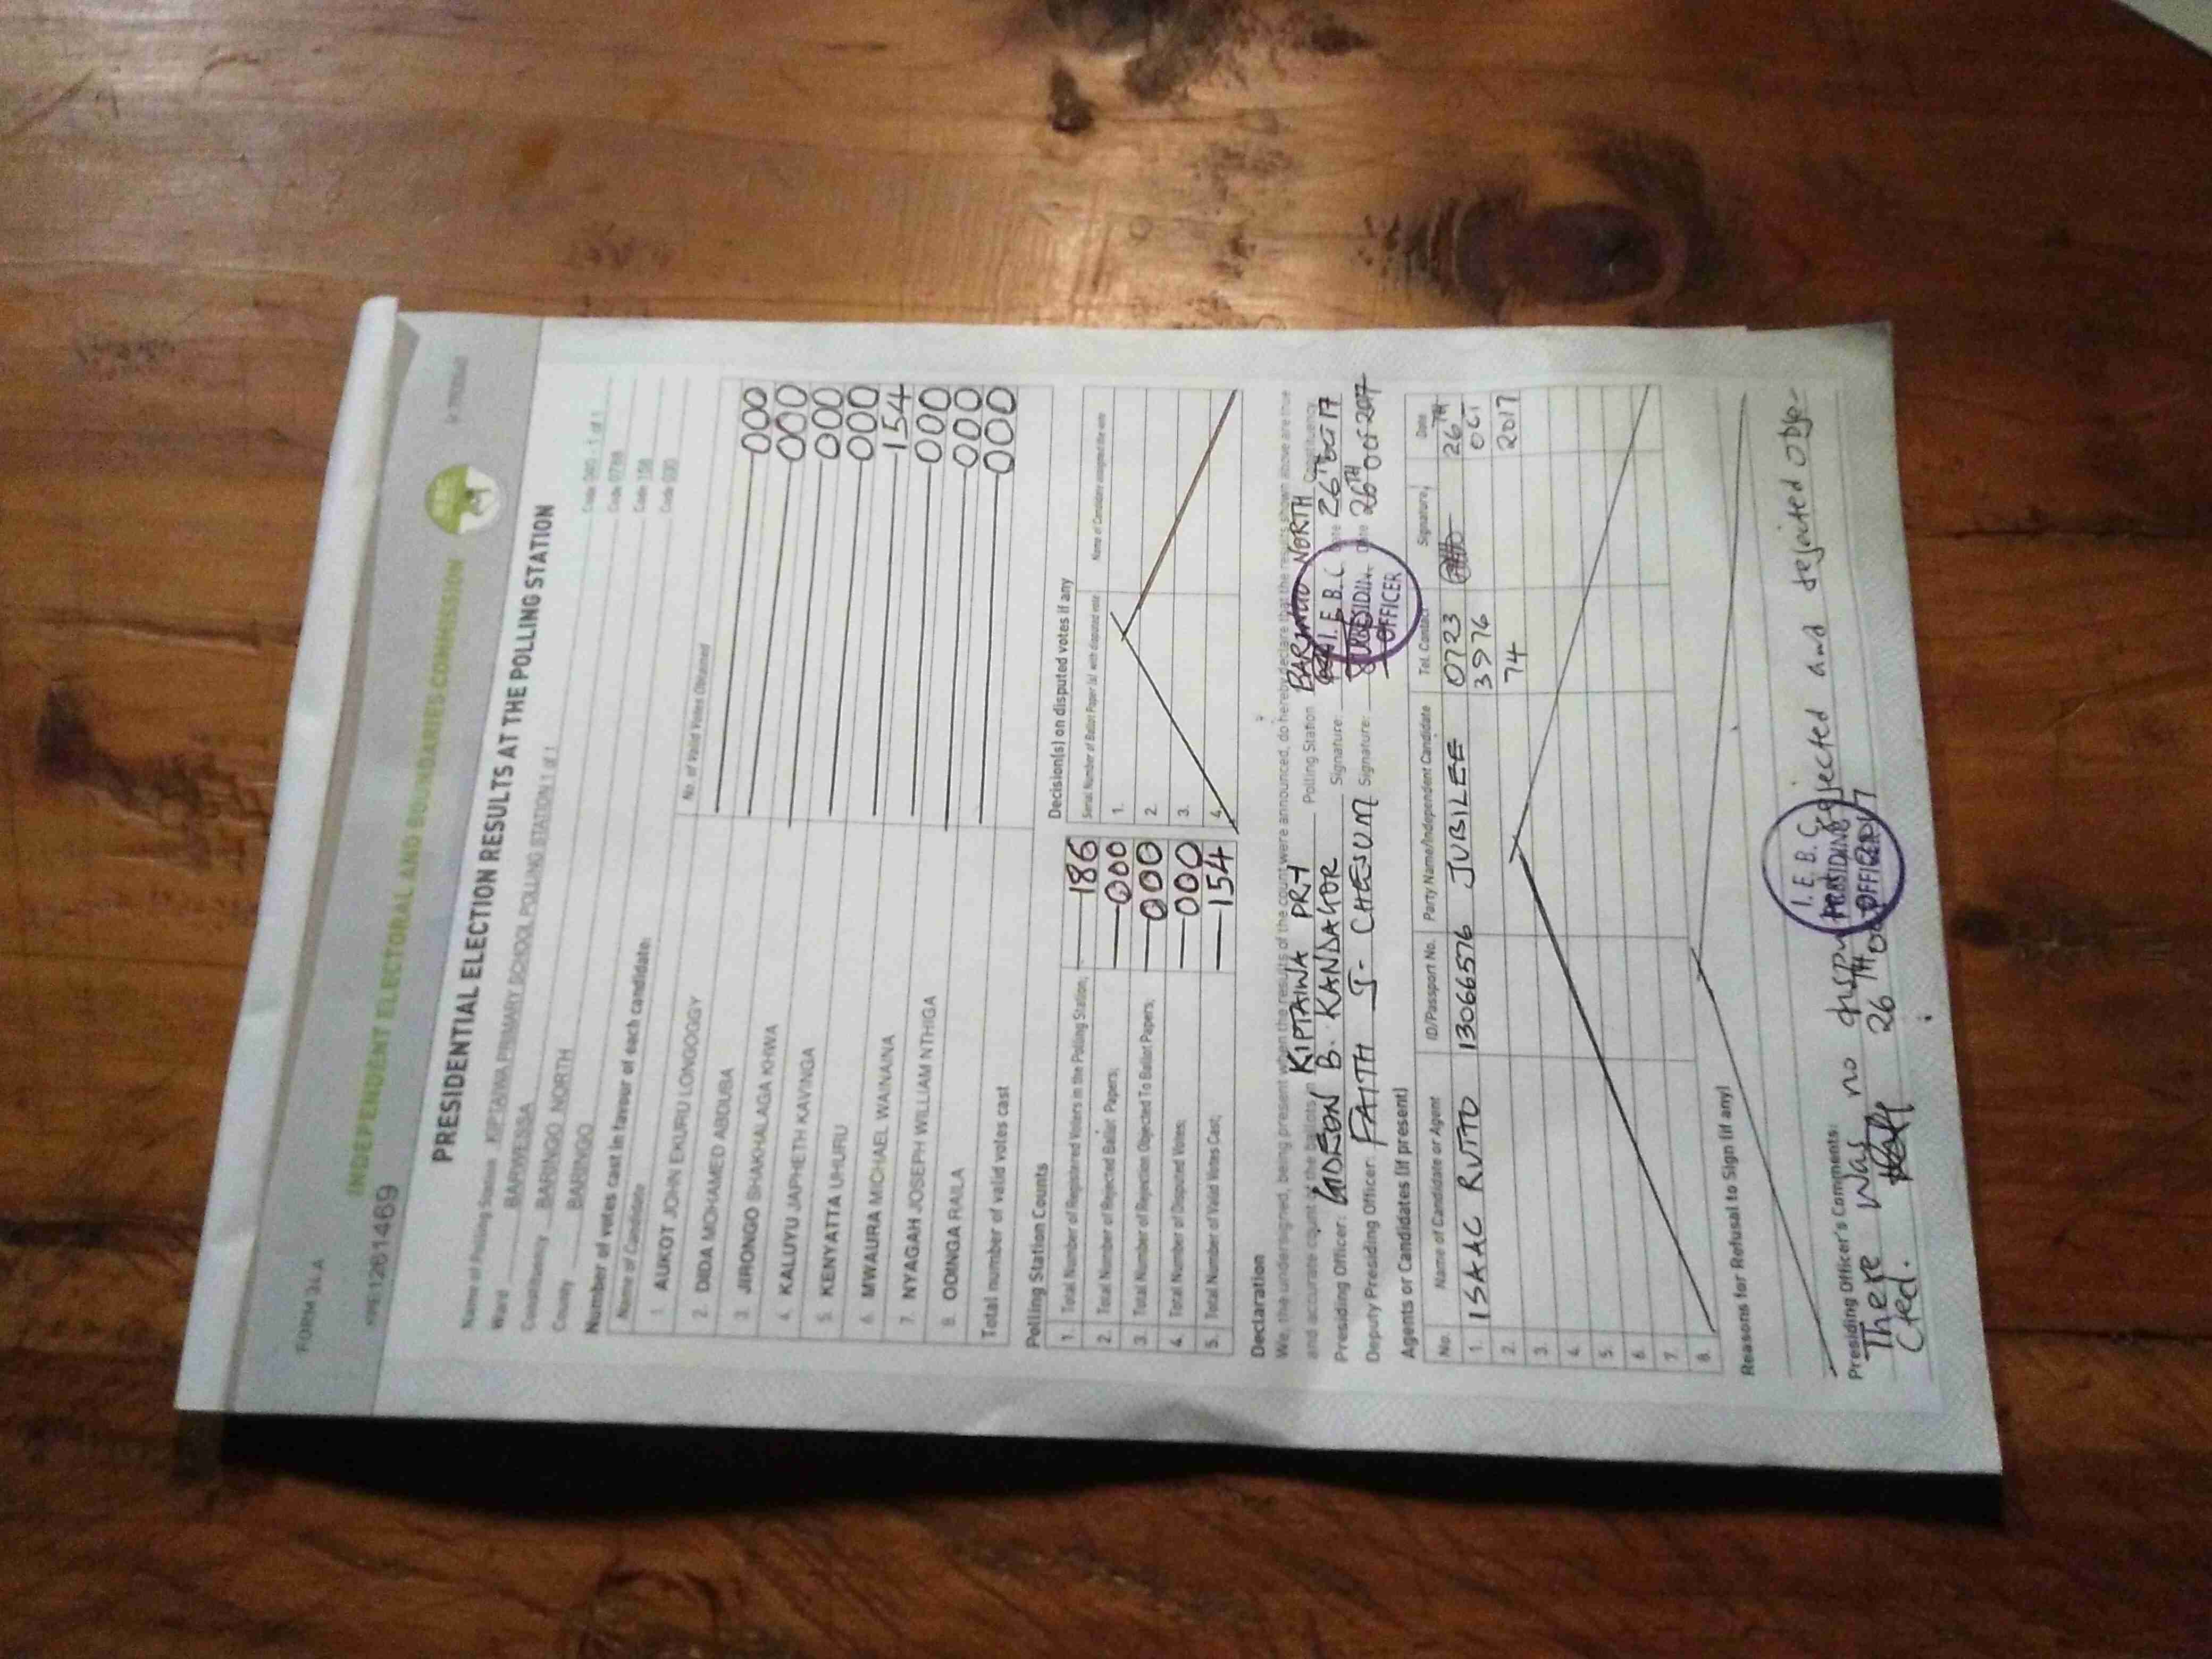 FORM 34 A
INDEPENDENT ELECTORAL AND BOUNDARIES COMMISSION
PRESIDENTIAL ELECTION RESULTS AT THE POLLING STATION
Name of Polling Station KIPTAWA PRIMARY SCHOOL POLLING STATION 1 of 1
Ward BARWESSA
Constituency BARINGO NORTH Code 158
County BARINGO Code 030
Number of votes cast in favour of each candidate:
Name of Candidate No. of Valid Votes Obtained
1. AUKOT JOHN EKURU LONGOGGY 000
2. DIDA MOHAMED ABDUBA 000
3. JIRONGO SHAKHALAGA KHWA 000
4. KALUYU JAPHETH KAVINGA 000
5. KENYATTA UHURU 154
6. MWAURA MICHAEL WAINAINA 000
7. NYAGAH JOSEPH WILLIAM NTHIGA 000
8. ODINGA RAILA 000
Total number of valid votes cast
Polling Station Counts
1. Total Number of Registered Voters in the Polling Station; 186
2. Total Number of Rejected Ballot Papers; 000
3. Total Number of Rejection Objected To Ballot Papers; 000
4. Total Number of Disputed Votes; 000
5. Total Number of Valid Votes Cast; 154
Decision(s) on disputed votes if any
Serial Number of Ballot Paper (s) with disputed vote Name of Candidate assigned the vote
1.
2.
3.
4.
Declaration
We, the undersigned, being present when the results of the count were announced, do hereby declare that the results shown above are true
and accurate count of the ballots in KIPTAIWA PRY Polling Station BARINGO NORTH Constituency
Presiding Officer: GIDEON B. KANDAGOR Signature: Date 26TH OCT 17
Deputy Presiding Officer: FAITH J. CHESUM Signature: Date 26TH OCT 2017
I.E.B.C
PRESIDING
OFFICER
Agents or Candidates (if present)
No. Name of Candidate or Agent ID/Passport No. Party Name/Independent Candidate Tel. Contact Signature Date
1. ISAAC RUTTO 13066576 JUBILEE 0723 3976 74 26TH OCT 2017
2.
3.
4.
5.
6.
7.
8.
Reasons for Refusal to Sign (if any)
Presiding Officer's Comments:
There was no rejected and rejected obje-
cted. 26TH
I.E.B.C
PRESIDING
OFFICER